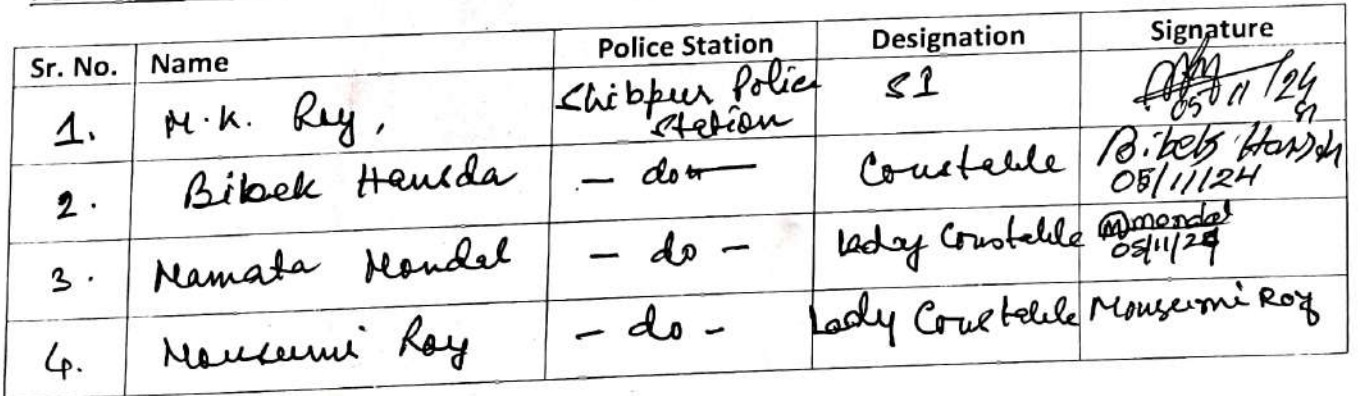 Sr. No. Name Police Station Designation Signature
1. M.K. Roy, Shibpur Police Station SI 05/11/24
2. Bibek Hansda - do - Constable Bibek Hansda 05/11/24
3. Mamata Mondal - do - Lady Constable Mmondal 05/11/24
4. Mousumi Roy - do - Lady Constable Mousumi Roy